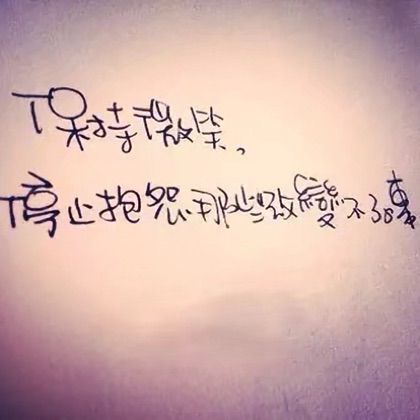 保持微笑,
停止抱怨那些改變不了的事